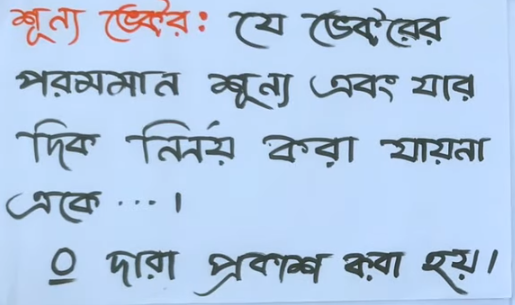 শূন্য ভেক্টর: যে ভেক্টরের
পরমমান শূন্য এবং যার
দিক নির্নয় করা যায়না
একে ...।
০ দারা প্রকাশ করা হয়।